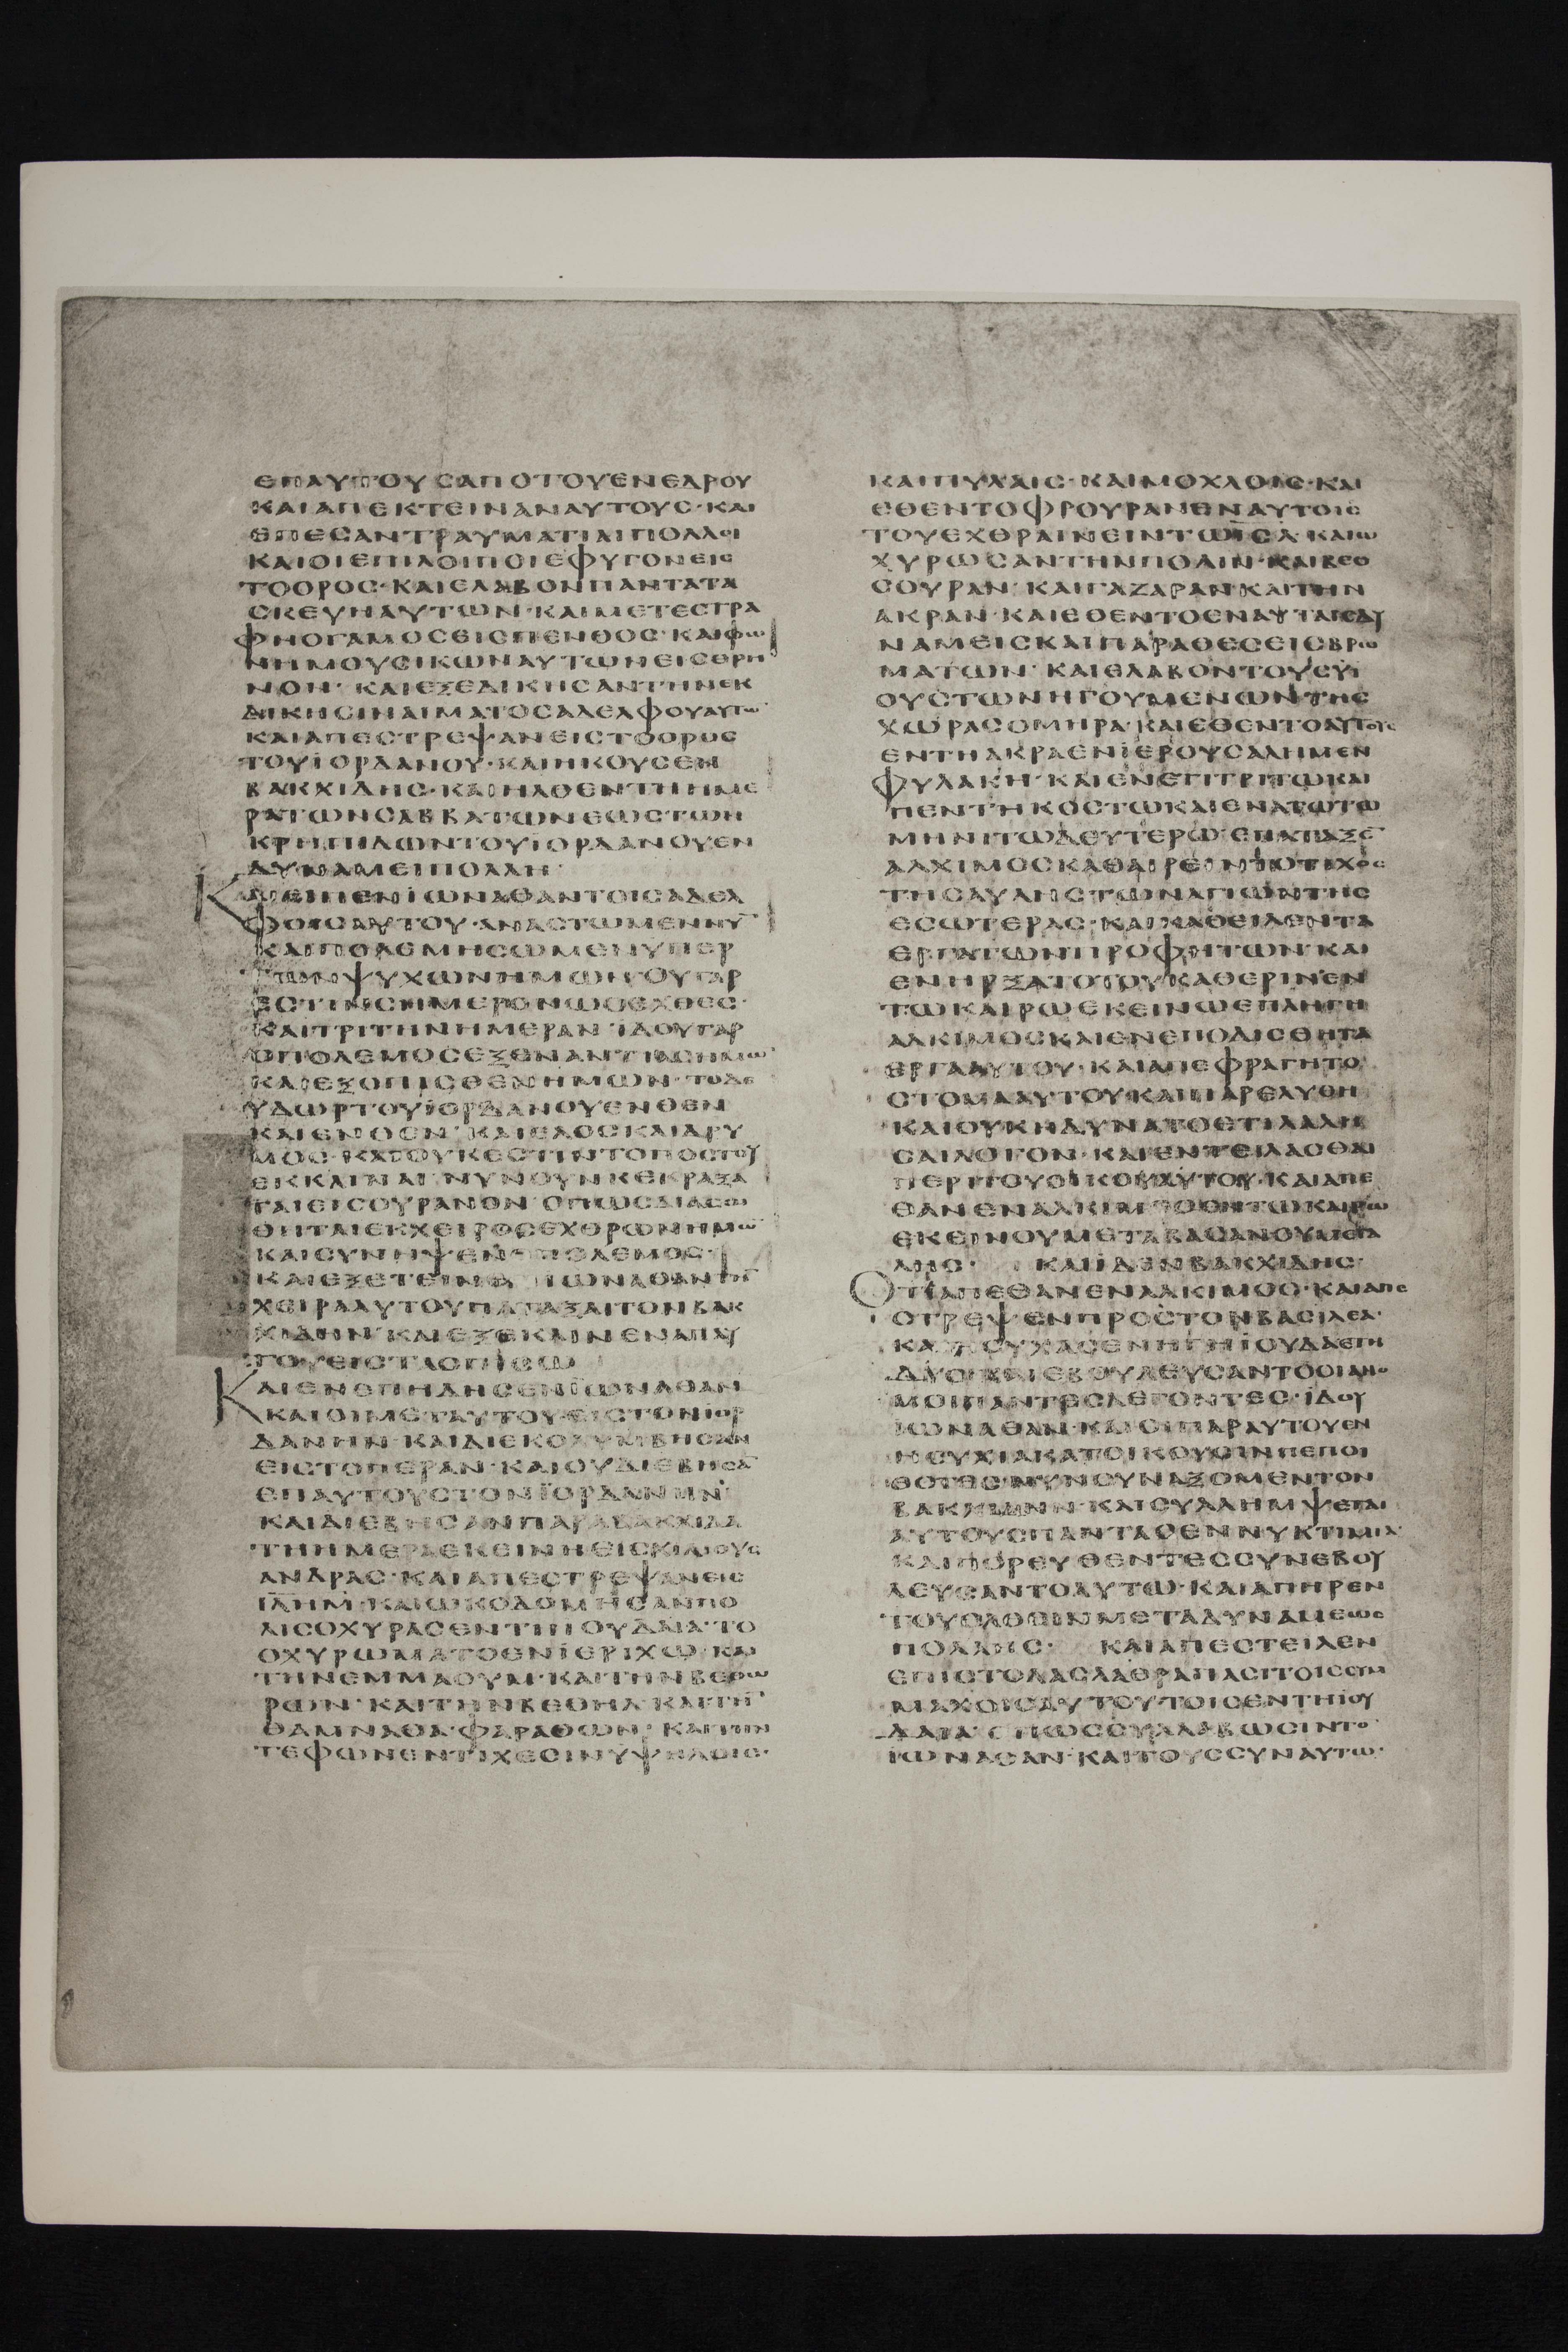 ΕΠΑΥΤΟΥСΑΠΟΤΟΥΕΝΕΔΡΟΥ
ΚΑΙΑΠΕΚΤΕΙΝΑΝΑΥΤΟΥС·ΚΑΙ
ΕΠΕСΑΝΤΡΑΥΜΑΤΙΑΙΠΟΛΛΟΙ
ΚΑΙΟΙΕΠΙΛΟΙΠΟΙΕΦΥΓΟΝΕΙС
ΤΟΟΡΟС·ΚΑΙΕΛΑΒΟΝΠΑΝΤΑΤΑ
СΚΕΥΗΑΥΤΩΝ·ΚΑΙΜΕΤΕСΤΡΑ
ΦΗΟΓΑΜΟСΕΙСΠΕΝΘΟС·ΚΑΙΦΩ
ΝΗΜΟΥСΙΚΩΝΑΥΤΩΝΕΙСΘΡΗ
ΝΟΝ· ΚΑΙΕΞΕΔΙΚΗСΑΝΤΗΝΕΚ
ΔΙΚΗСΙΝΑΙΜΑΤΟСΑΔΕΛΦΟΥΑΥΤΩ̅
ΚΑΙΑΠΕСΤΡΕΨΑΝΕΙСΤΟΟΡΟС
ΤΟΥΪΟΡΔΑΝΟΥ·ΚΑΙΗΚΟΥСΕΝ
ΒΑΚΧΙΔΗС·ΚΑΙΗΛΘΕΝΤΗΗΜΕ
ΡΑΤΩΝСΑΒΒΑΤΩΝΕΩСΤΩΝ
ΚΡΗΠΙΔΩΝΤΟΥΪΟΡΔΑΝΟΥΕΝ
ΔΥΝΑΜΕΙΠΟΛΛΗ·
ΚΑΙΕΙΠΕΝΪΩΝΑΘΑΝΤΟΙСΑΔΕΛ
ΦΟΙСΑΥΤΟΥ·ΑΝΑСΤΩΜΕΝΝΥ̅
ΚΑΙΠΟΛΕΜΗСΩΜΕΝΥΠΕΡ
ΤΩΝΨΥΧΩΝΗΜΩΝ·ΟΥΓΑΡ
ΕСΤΙΝСΗΜΕΡΟΝΩСΕΧΘΕС·
ΚΑΙΤΡΙΤΗΝΗΜΕΡΑΝ·ΪΔΟΥΓΑΡ
ΟΠΟΛΕΜΟСΕΞΕΝΑΝΤΙΑСΗΜΩ̅
ΚΑΙΕΞΟΠΙСΘΕΝΗΜΩΝ·ΤΟΔΕ
ΥΔΩΡΤΟΥΪΟΡΔΑΝΟΥΕΝΘΕΝ
ΚΑΙΕΝΘΕΝ·ΚΑΙΕΛΟСΚΑΙΔΡΥ
ΜΟС·ΚΑΙΟΥΚΕСΤΙΝΤΟΠΟСΤΟΥ
ΕΚΚΛΙΝΑΙ·ΝΥΝΟΥΝΚΕΚΡΑΞΑ
ΤΑΙΕΙСΟΥΡΑΝΟΝ·ΟΠΩСΔΙΑСΩ
ΘΗΤΑΙΕΚΧΕΙΡΟСΕΧΘΡΩΝΗΜΩ̅
ΚΑΙСΥΝΗΨΕΝ ΠΟΛΕΜΟС·
ΚΑΙΕΞΕΤΕΙΝΕ ΪΩΝΑΘΑΝΤΗ̅
ΧΕΙΡΑΑΥΤΟΥΠΑΤΑΞΑΙΤΟΝΒΑΚ
ΧΙΔΗΝ·ΚΑΙΕΞΕΚΛΙΝΕΝΑΠΑΥ
ΤΟΥΕΙСΤΑΟΠΙСΩ
ΚΑΙΕΝΕΠΗΔΗСΕΝΪΩΝΑΘΑΝ
ΚΑΙΟΙΜΕΤΑΥΤΟΥΕΙСΤΟΝΪΟΡ
ΔΑΝΗΝ·ΚΑΙΔΙΕΚΟΛΥΜΒΗСΑΝ
ΕΙСΤΟΠΕΡΑΝ·ΚΑΙΟΥΔΙΕΒΗСΑ̅
ΕΠΑΥΤΟΥСΤΟΝΪΟΡΔΑΝΗΝ·
ΚΑΙΔΙΕΒΗСΑΝΠΑΡΑΒΑΚΧΙΔΑ
ΤΗΗΜΕΡΑΕΚΕΙΝΗΕΙСΧΙΛΙΟΥС
ΑΝΔΡΑС·ΚΑΙΑΠΕСΤΡΕΨΑΝΕΙС
ΙΛΗΜ·ΚΑΙΩΚΟΔΟΜΗСΑΝΠΟ
ΛΙСΟΧΥΡΑСΕΝΤΗΪΟΥΔΑΙΑ·ΤΟ
ΟΧΥΡΩΜΑΤΟΕΝΪΕΡΙΧΩ·ΚΑΙ
ΤΗΝΕΜΜΑΟΥΜ·ΚΑΙΤΗΝΒΕΘΩ
ΡΩΝ·ΚΑΙΤΗΝΒΕΘΗΛ·ΚΑΙΤΗ̅
ΘΑΜΝΑΘΑ·ΦΑΡΑΘΩΝ·ΚΑΙΤΗΝ
ΤΕΦΩΝΕΝΤΙΧΕСΙΝΥΨΗΛΟΙС·
ΚΑΙΠΥΛΑΙС·ΚΑΙΜΟΧΛΟΙС·ΚΑΙ
ΕΘΕΝΤΟΦΡΟΥΡΑΝΕΝΑΥΤΟΙС
ΤΟΥΕΧΘΡΑΙΝΕΙΝΤΩΙСΛ·ΚΑΙΩ
ΧΥΡΩСΑΝΤΗΝΠΟΛΙΝ·ΚΑΙΒΕΘ
СΟΥΡΑΝ·ΚΑΙΓΑΖΑΡΑΝΚΑΙΤΗΝ
ΑΚΡΑΝ·ΚΑΙΕΘΕΝΤΟΕΝΑΥΤΑΙСΔΥ
ΝΑΜΕΙСΚΑΙΠΑΡΑΘΕСΕΙСΒΡΩ
ΜΑΤΩΝ·ΚΑΙΕΛΑΒΟΝΤΟΥСΥΪ
ΟΥСΤΩΝΗΓΟΥΜΕΝΩΝΤΗС
ΧΩΡΑСΟΜΗΡΑ·ΚΑΙΕΘΕΝΤΟΑΥΤΟΥС
ΕΝΤΗΑΚΡΑΕΝΪΕΡΟΥСΑΛΗΜΕΝ
ΦΥΛΑΚΗ·ΚΑΙΕΝΕΠΙΤΡΙΤΩΚΑΙ
ΠΕΝΤΗΚΟСΤΩΚΑΙΕΝΑΤΩΤΩ
ΜΗΝΙΤΩΔΕΥΤΕΡΩ·ΕΠΑΤΑΞΕ̅
ΑΛΧΙΜΟСΚΑΘΑΙΡΕΙΝΤΟΤΙΧΟС
ΤΗСΑΥΛΗСΤΩΝΑΓΙΩΝΤΗС
ΕСΩΤΕΡΑС·ΚΑΙΚΑΘΕΙΛΕΝΤΑ
ΕΡΓΑΤΩΝΠΡΟΦΗΤΩΝ·ΚΑΙ
ΕΝΗΡΞΑΤΟΤΟΥΚΑΘΕΡΙΝΕΝ
ΤΩΚΑΙΡΩΕΚΕΙΝΩΕΠΛΗΓΗ
ΑΛΚΙΜΟСΚΑΙΕΝΕΠΟΔΙСΘΗΤΑ
ΕΡΓΑΑΥΤΟΥ·ΚΑΙΑΠΕΦΡΑΓΗΤΟ
СΤΟΜΑΑΥΤΟΥΚΑΙΠΑΡΕΛΥΘΗ
ΚΑΙΟΥΚΗΔΥΝΑΤΟΕΤΙΛΑΛΗ
СΑΙΛΟΓΟΝ·ΚΑΙΕΝΤΕΙΛΑСΘΑΙ
ΠΕΡΙΤΟΥΟΙΚΟΥΑΥΤΟΥ·ΚΑΙΑΠΕ
ΘΑΝΕΝΑΛΚΙΜΟСΕΝΤΩΚΑΙΡΩ
ΕΚΕΙΝΟΥΜΕΤΑΒΑСΑΝΟΥΜΕΓΑ
ΛΗС· ΚΑΙΪΔΕΝΒΑΚΧΙΔΗС·
ΟΤΙΑΠΕΘΑΝΕΝΑΛΚΙΜΟС·ΚΑΙΑΠΕ
СΤΡΕΨΕΝΠΡΟСΤΟΝΒΑСΙΛΕΑ·
ΚΑΙΗСΥΧΑСΕΝΗΓΗΪΟΥΔΑΕΤΗ
ΔΥΟ·ΚΑΙΕΒΟΥΛΕΥСΑΝΤΟΟΙΑΝΟ
ΜΟΙΠΑΝΤΕСΛΕΓΟΝΤΕС·ΪΔΟΥ
ΪΩΝΑΘΑΝ·ΚΑΙΟΙΠΑΡΑΥΤΟΥΕΝ
ΗСΥΧΙΑΚΑΤΟΙΚΟΥСΙΝΠΕΠΟΙ
ΘΟΤΕС·ΝΥΝΟΥΝΑΞΟΜΕΝΤΟΝ
ΒΑΚΧΙΔΗΝ·ΚΑΙСΥΛΛΗΜΨΕΤΑΙ
ΑΥΤΟΥСΠΑΝΤΑСΕΝΝΥΚΤΙΜΙΑ·
ΚΑΙΠΟΡΕΥΘΕΝΤΕССΥΝΕΒΟΥ
ΛΕΥСΑΝΤΟΑΥΤΩ·ΚΑΙΑΠΗΡΕΝ
ΤΟΥΕΛΘΕΙΝΜΕΤΑΔΥΝΑΜΕΩС
ΠΟΛΛΗС· ΚΑΙΑΠΕСΤΕΙΛΕΝ
ΕΠΙСΤΟΛΑСΛΑΘΡΑΠΑСΙΤΟΙССΥΜ
ΜΑΧΟΙСΑΥΤΟΥΤΟΙСΕΝΤΗΪΟΥ
ΔΑΙΑ·ΟΠΩССΥΛΛΑΒΩСΙΝΤΟ̅
ΪΩΝΑΘΑΝ·ΚΑΙΤΟΥССΥΝΑΥΤΩ·